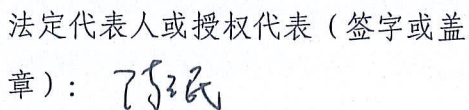 法定代表人或授权代表（签字或盖
章）：